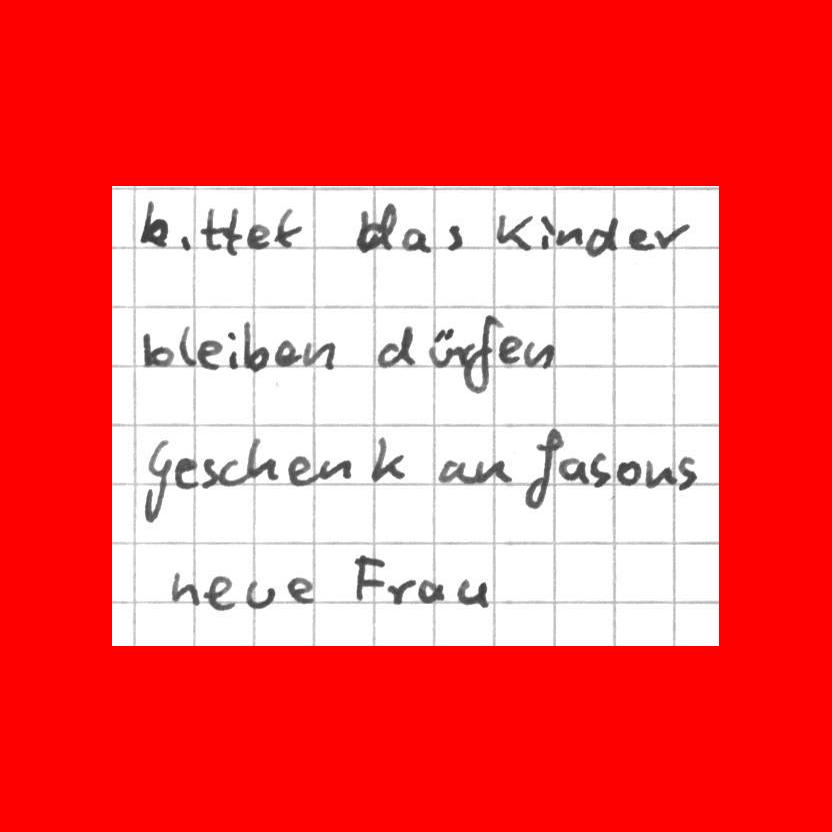 bittet das Kinder
bleiben dürfen
Geschenk an Jasons
neue Frau